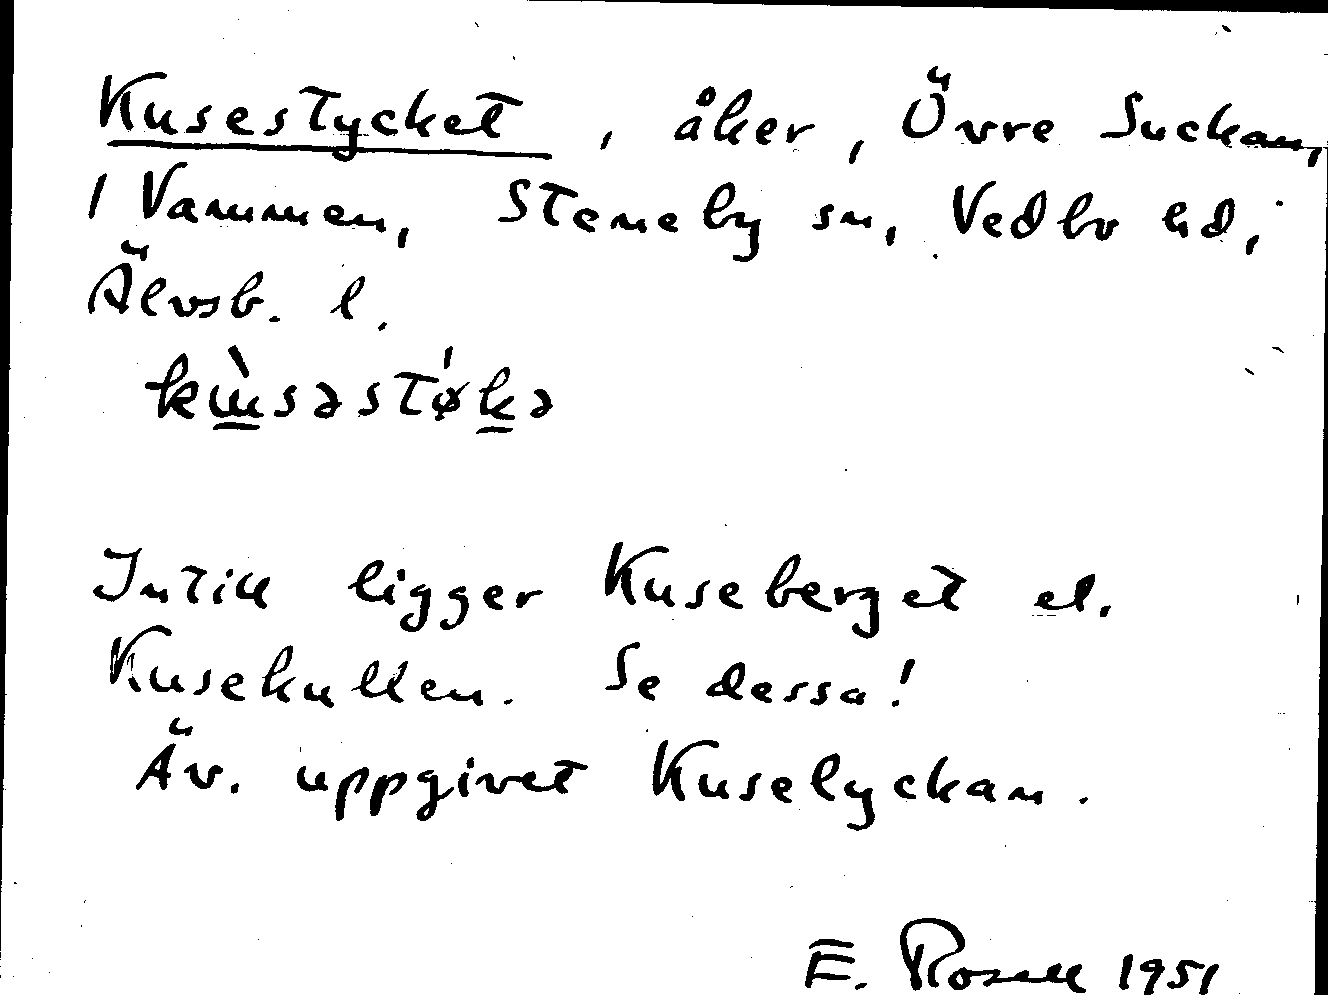 Kusestycket, åker, Övre Suckan,
1 Vammen, Steneby sn, Vedbo hd,
Älvsb. l.
kɯ̀səstø̍kə
Intill ligger Kuseberget el.
Kusekullen. Se dessa!
Äv. uppgivet Kuselyckan.
E. Rosell 1951